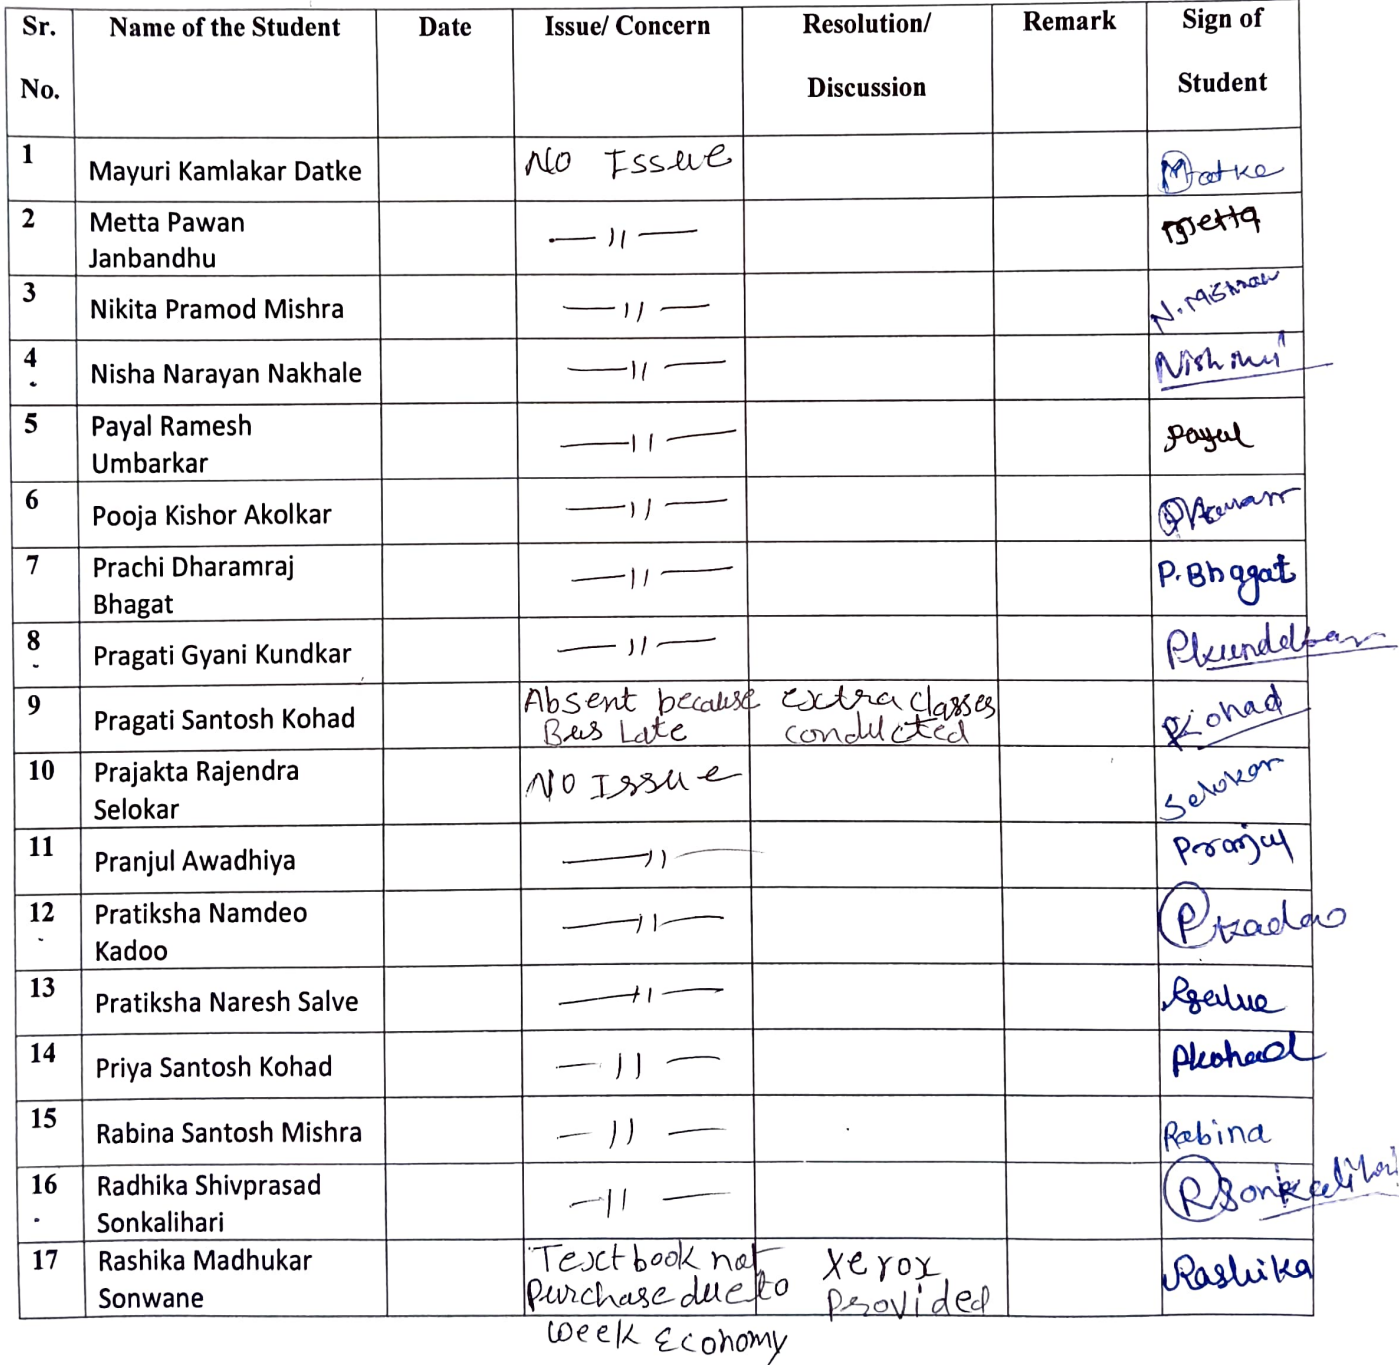 Sr. No. Name of the Student Date Issue/ Concern Resolution/ Discussion Remark Sign of Student
1 Mayuri Kamlakar Datke No Issue Datke
2 Metta Pawan Janbandhu —〃— Metta
3 Nikita Pramod Mishra —〃— N. Mishra
4 Nisha Narayan Nakhale —〃—
5 Payal Ramesh Umbarkar —〃— Payal
6 Pooja Kishor Akolkar —〃—
7 Prachi Dharamraj Bhagat —〃— P. Bhagat
8 Pragati Gyani Kundkar —〃—
9 Pragati Santosh Kohad Absent because Bus Late extra classes conducted Pkohad
10 Prajakta Rajendra Selokar No Issue Selokar
11 Pranjul Awadhiya —〃—
12 Pratiksha Namdeo Kadoo —〃— P kadoo
13 Pratiksha Naresh Salve —〃— Psalve
14 Priya Santosh Kohad —〃— Pkohad
15 Rabina Santosh Mishra —〃— Rabina
16 Radhika Shivprasad Sonkalihari —〃— RSonkalihari
17 Rashika Madhukar Sonwane Textbook not Purchase due to week Economy Xerox Provided Rashika